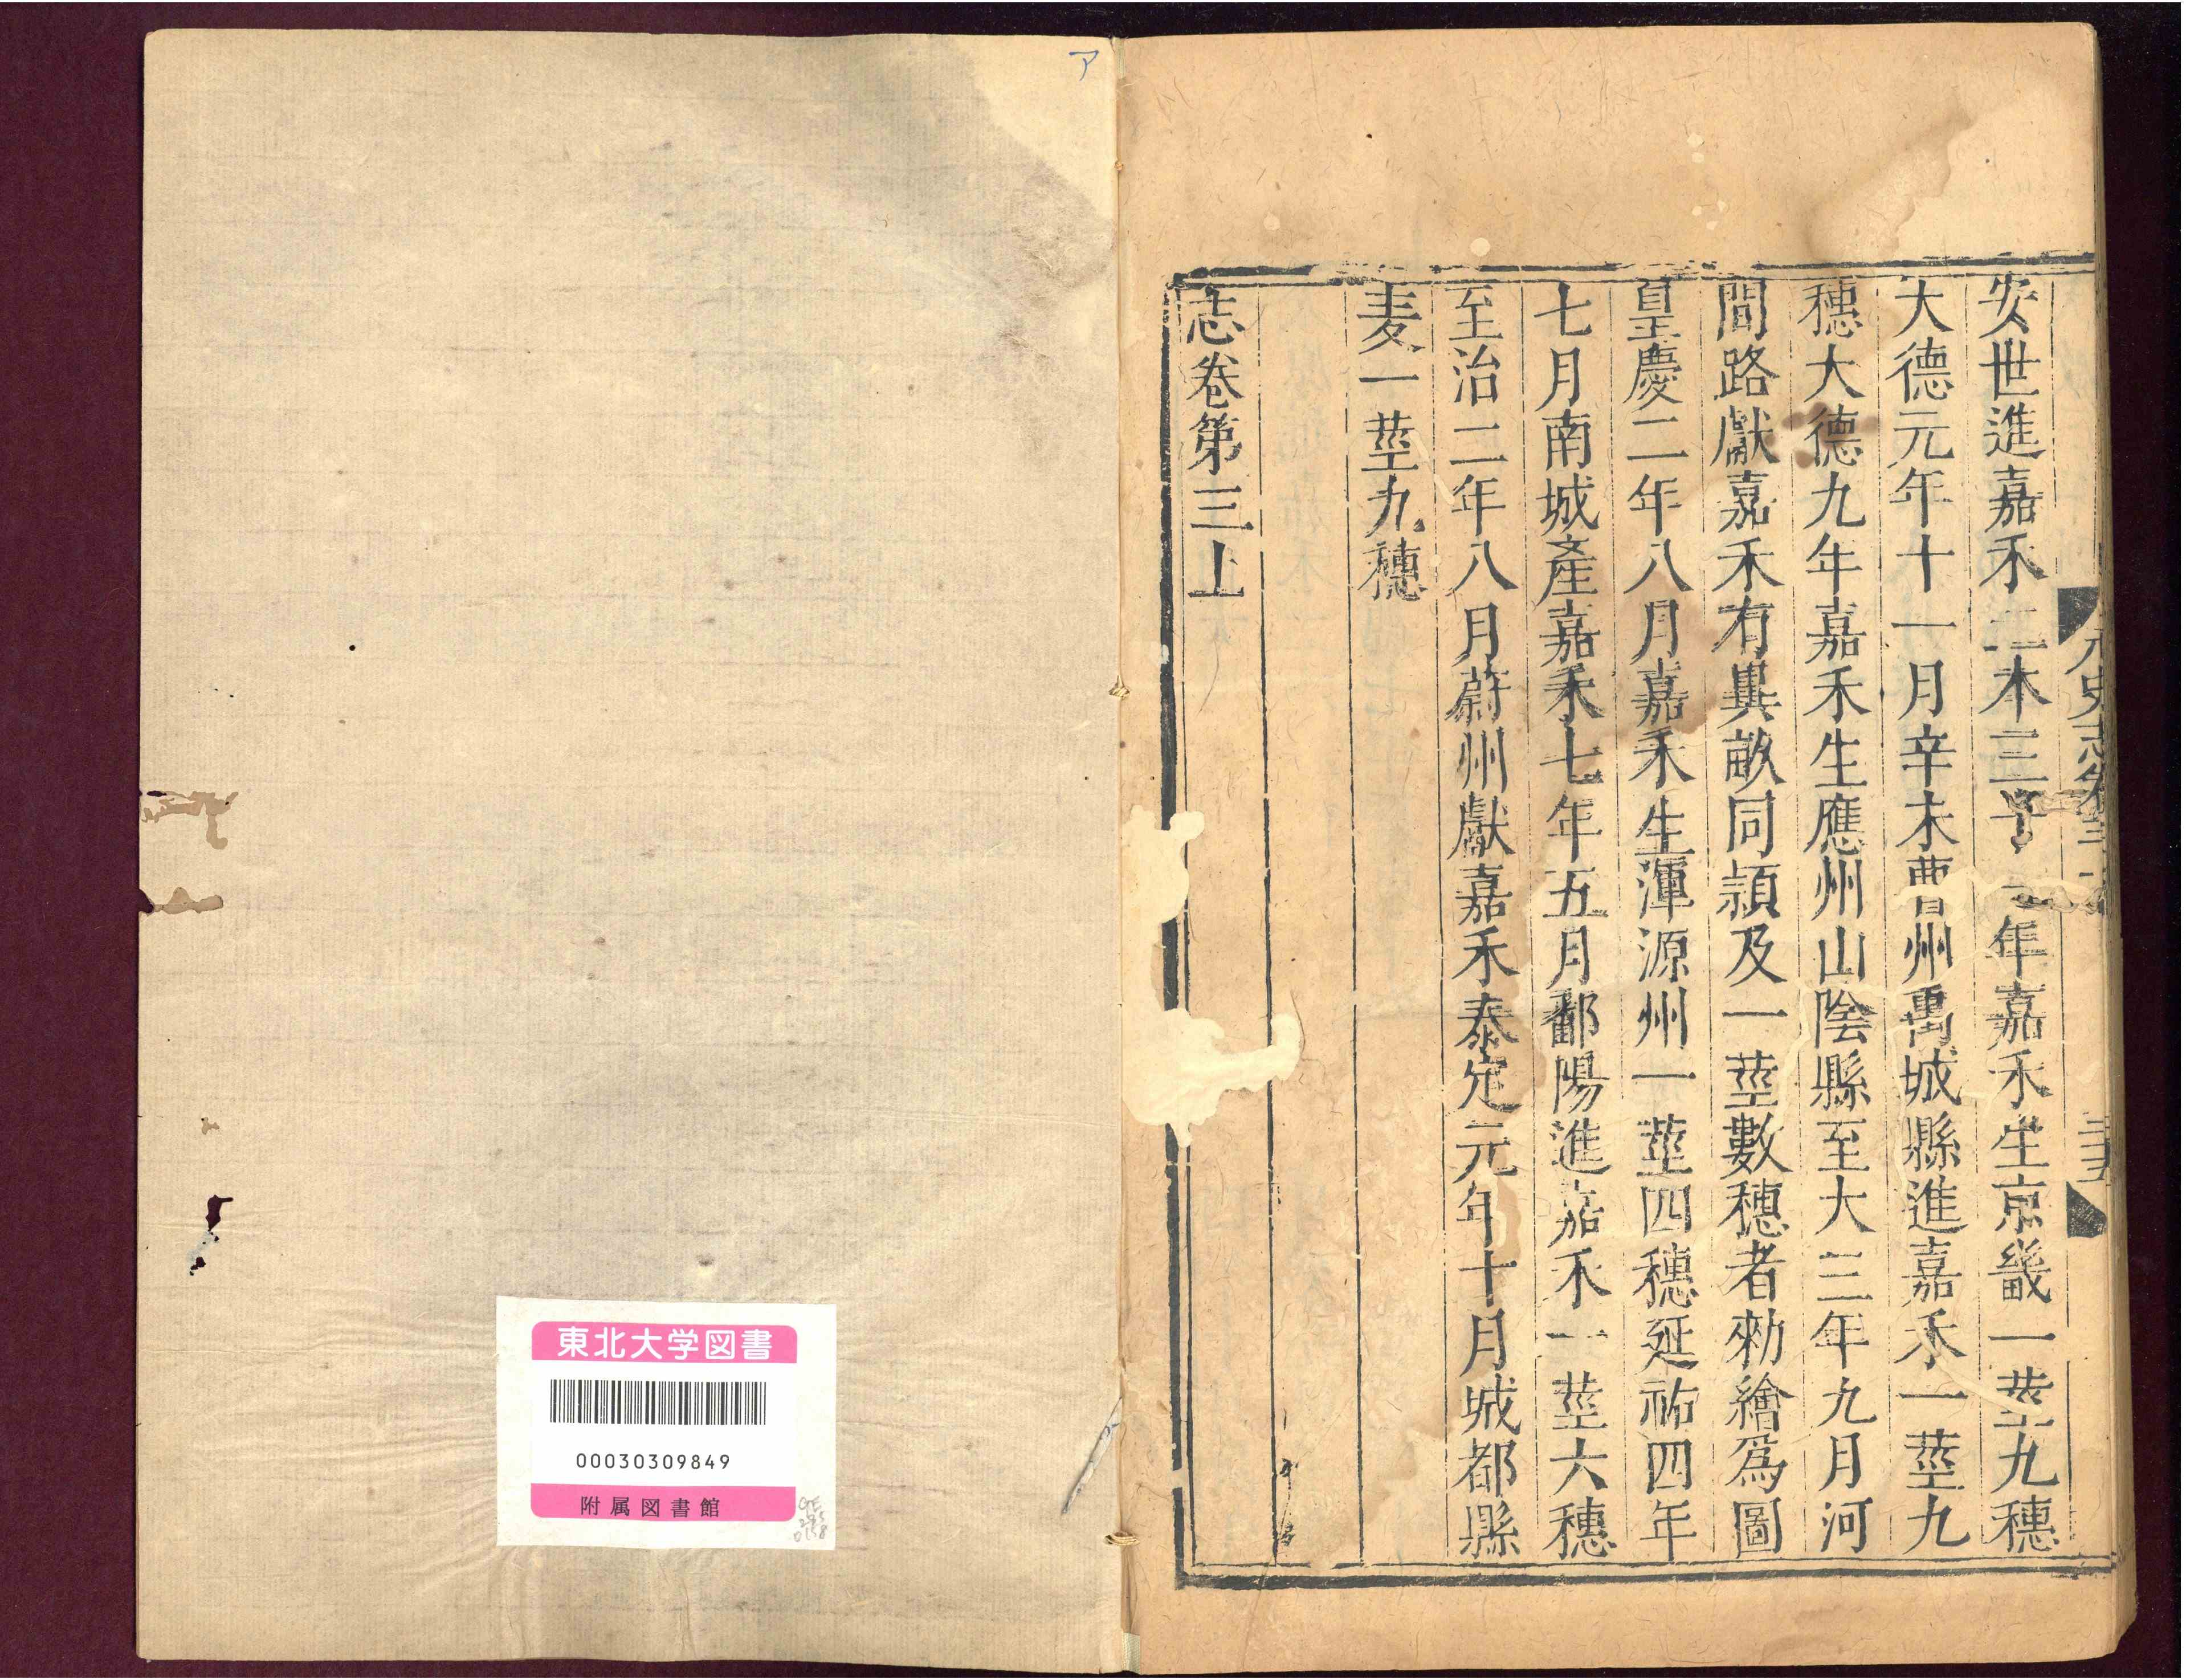 元史志卷三上
三十五
安世進嘉禾二本三十一年嘉禾生京畿一莖九穗
大德元年十一月辛未曹州禹城縣進嘉禾一莖九
穗大德九年嘉禾生應州山陰縣至大三年九月河
間路獻嘉禾有異畝同頴及一莖數穗者勑繪爲圖
皇慶二年八月嘉禾生渾源州一莖四穗延祐四年
七月南城產嘉禾七年五月鄱陽進嘉禾一莖六穗
至治二年八月蔚州獻嘉禾泰定元年十月城都縣
麦一莖九穗
志卷第三上
ア
東北大学図書
00030309849
附属図書館